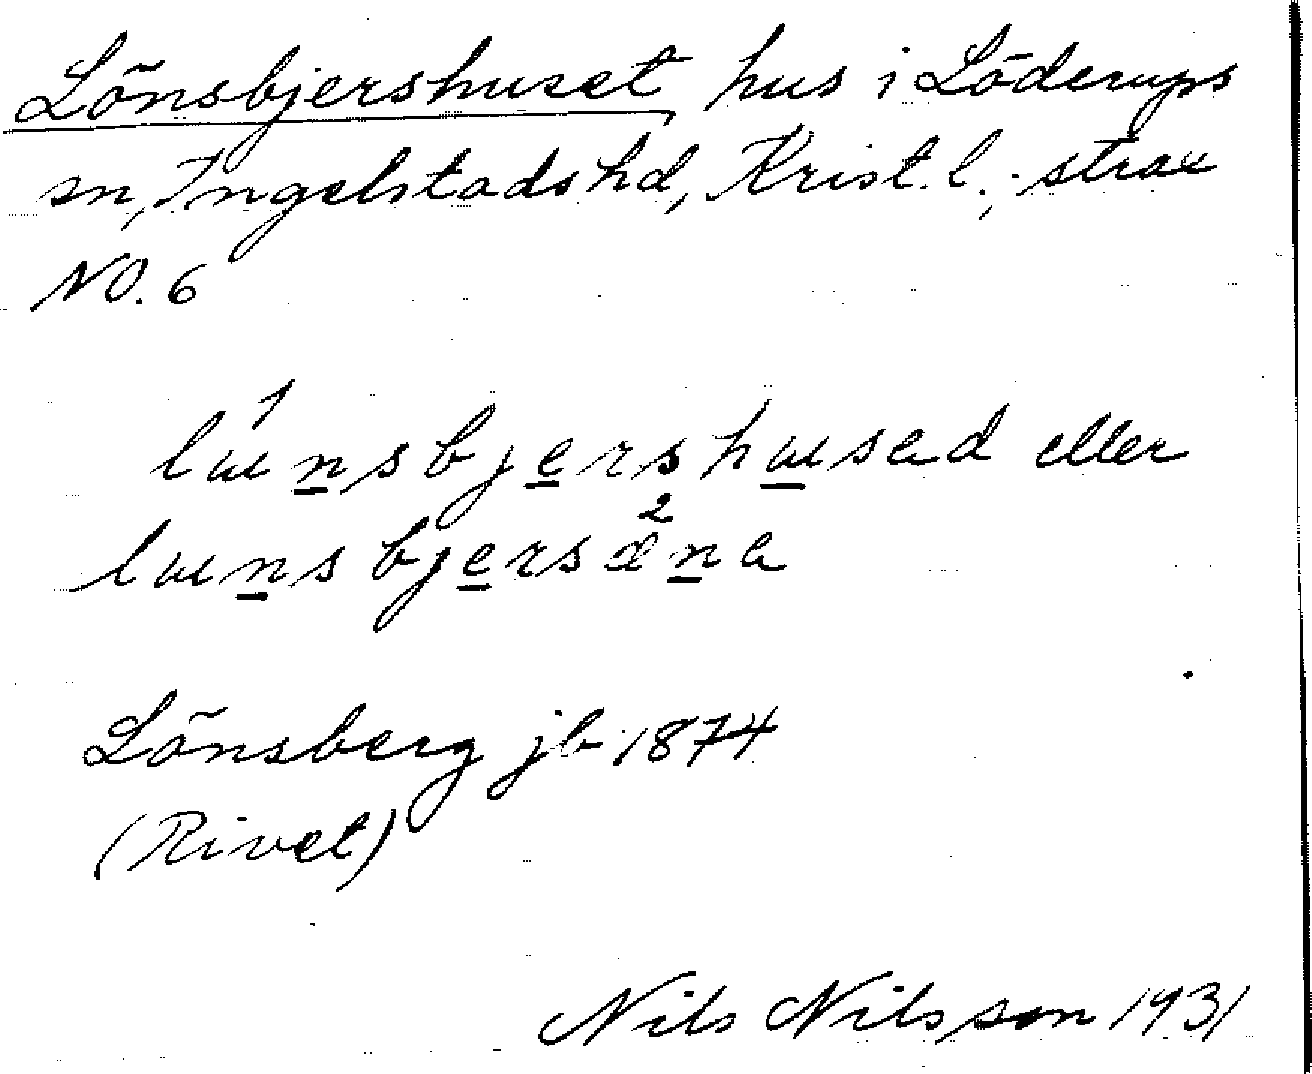 Lönsbjershuset, hus i Löderups
sn, Ingelstads hd, Krist. l.; strax
NO. 6
lœnsbjershœsed eller
lœnsbjersæna
Lönsberg jb 1874
(Rivet)
Nils Nilsson 1931